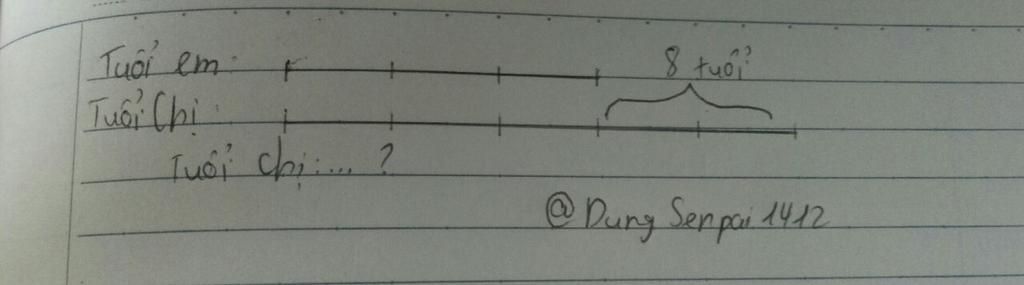 Tuổi em:
8 tuổi
Tuổi Chị:
Tuổi chị:...?
@Dung Senpai 1412